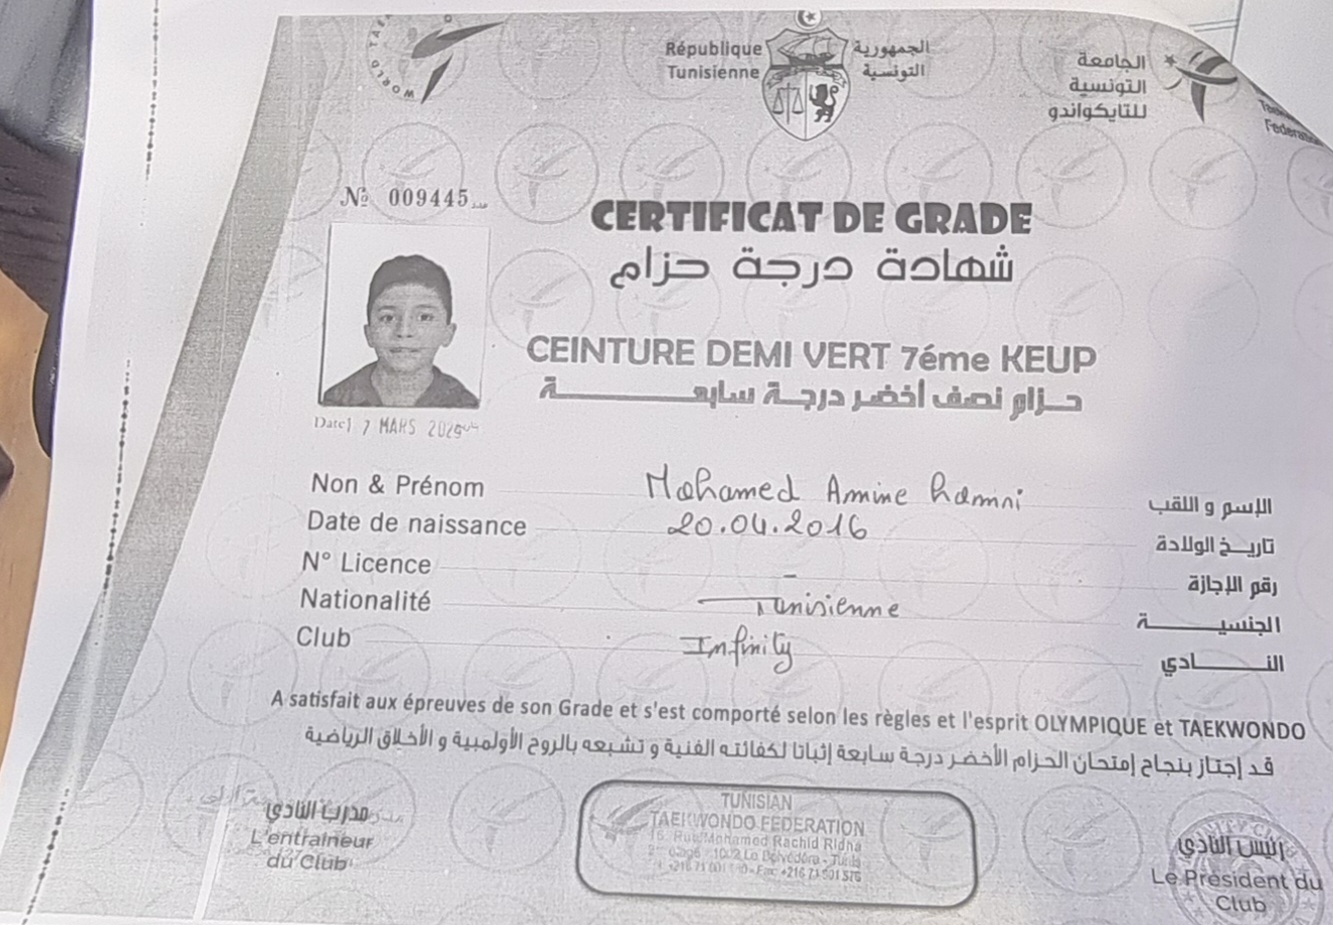 WORLD TAE
République
Tunisienne
الجمهورية
التونسية
الجامعة
التونسية
للتايكواندو
Federat
№ 009445
CERTIFICAT DE GRADE
شهادة درجة حزام
CEINTURE DEMI VERT 7éme KEUP
حـزام نصف أخضر درجـة سابعـــــة
Date 17 MARS 2025
Non & Prénom Mohamed Amine hamni الإسم و اللقب
Date de naissance 20.04.2016 تاريـخ الولادة
N° Licence - رقم الإجازة
Nationalité Tunisienne الجنسيـــــة
Club Infinity النـــــادي
A satisfait aux épreuves de son Grade et s'est comporté selon les règles et l'esprit OLYMPIQUE et TAEKWONDO
قد إجتاز بنجاح إمتحان الحزام الأخضر درجة سابعة إثباتا لكفائته الفنية و تشبعه بالروح الأولمبية و الأخلاق الرياضية
مدرب النادي
L'entraineur
du Club
TUNISIAN
TAEKWONDO FEDERATION
Rue Mohamed Rachid Ridha
1002 Le Belvédère - Tunis
رئيس النادي
Le Président du
Club